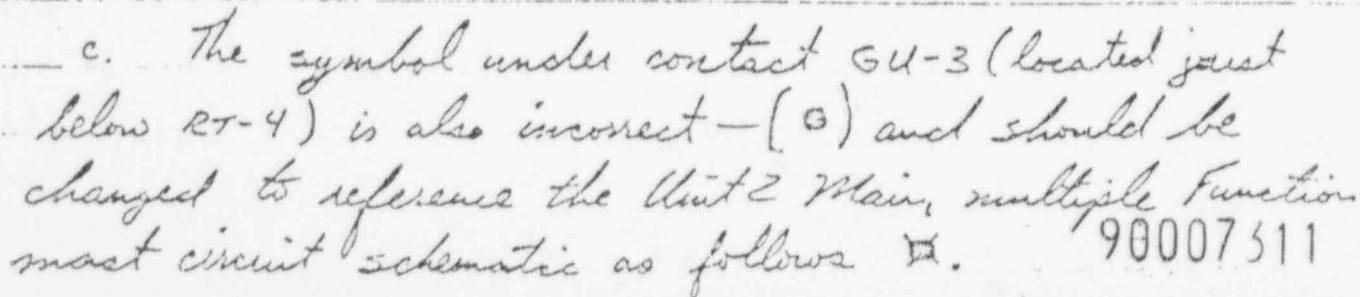 c. The symbol under contact GU-3 (located just
below RT-4) is also incorrect – (G) and should be
changed to reference the Unit 2 Main, multiple Function
mast circuit schematic as follows
90007311